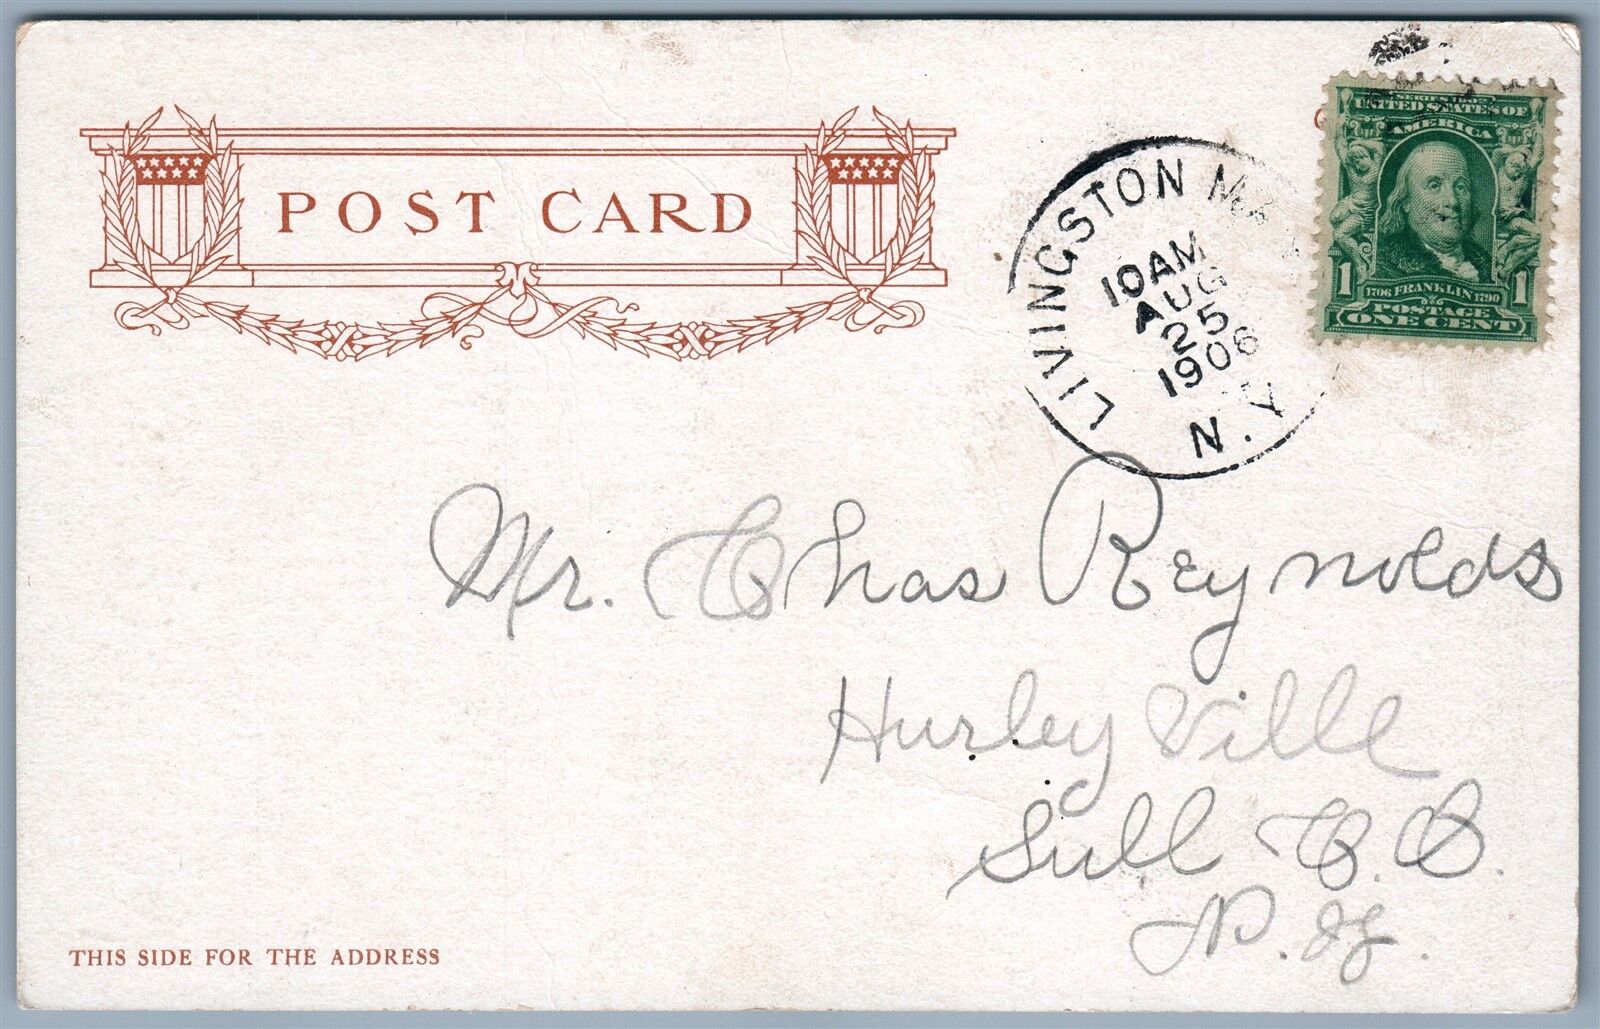 POST CARD
LIVINGSTON
10 AM
AUG
25
1906
N.Y.
SERIES 1902
UNITED STATES OF
AMERICA
1 1706 FRANKLIN 1790 1
POSTAGE
ONE CENT
Mr. Chas Reynolds
Hurley Ville
Sull C. O.
N. Y.
THIS SIDE FOR THE ADDRESS